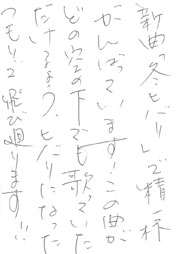 新曲「冬ヒバリ」で精一杯
がんばっています！この曲が
どの空の下でも歌っていた
だけるよう、ヒバリになった
つもりで飛び廻ります!!